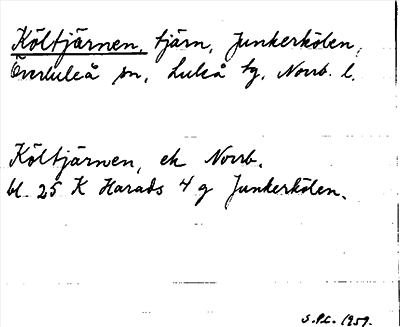 Költjärnen, tjärn, Junkerkölen,
Överluleå sn, Luleå tg, Norrb. l.
Költjärnen, ek Norrb.
bl. 25 K Harads 4 g Junkerkölen.
S.P.L. 1959.